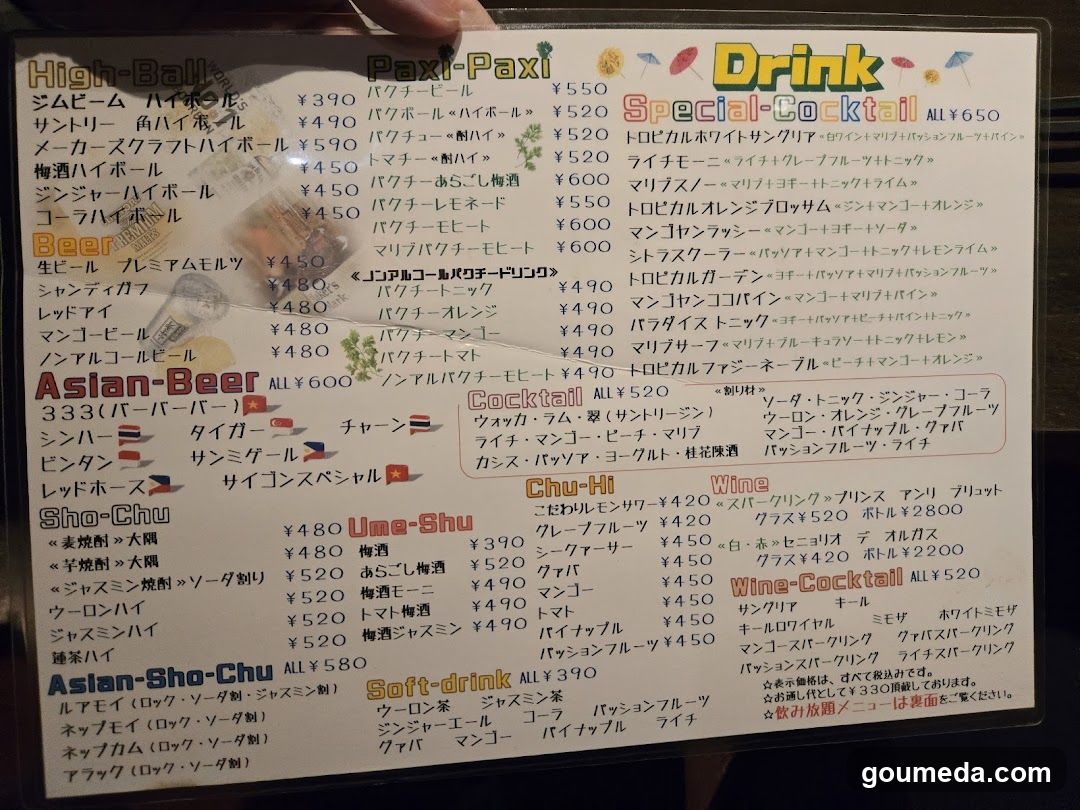 Drink
High-Ball
ジムビーム ハイボール ¥390
サントリー 角ハイボール ¥490
メーカーズクラフトハイボール ¥590
梅酒ハイボール ¥450
ジンジャーハイボール ¥450
コーラハイボール ¥450
Beer
生ビール プレミアムモルツ ¥450
シャンディガフ ¥480
レッドアイ ¥480
マンゴービール ¥480
ノンアルコールビール ¥480
Asian-Beer ALL¥600
333(バーバーバー)
シンハー タイガー チャーン
ビンタン サンミゲール
レッドホース サイゴンスペシャル
Sho-Chu
«麦焼酎»大隅 ¥480
«芋焼酎»大隅 ¥480
«ジャスミン焼酎»ソーダ割り ¥520
ウーロンハイ ¥520
ジャスミンハイ ¥520
蓮茶ハイ ¥520
Asian-Sho-Chu ALL¥580
ルアモイ(ロック・ソーダ割・ジャスミン割)
ネップモイ(ロック・ソーダ割)
ネップカム(ロック・ソーダ割)
アラック(ロック・ソーダ割)
Paxi-Paxi
パクチービール ¥550
パクボール«ハイボール» ¥520
パクチュー«酎ハイ» ¥520
トマチー«酎ハイ» ¥520
パクチーあらごし梅酒 ¥600
パクチーレモネード ¥550
パクチーモヒート ¥600
マリブパクチーモヒート ¥600
«ノンアルコールパクチードリンク»
パクチートニック ¥490
パクチーオレンジ ¥490
パクチーマンゴー ¥490
パクチートマト ¥490
ノンアルパクチーモヒート ¥490
Special-Cocktail ALL¥650
トロピカルホワイトサングリア«白ワイン+マリブ+パッションフルーツ+パイン»
ライチモーニ«ライチ+グレープフルーツ+トニック»
マリブスノー«マリブ+ヨギー+トニック+ライム»
トロピカルオレンジブロッサム«ジン+マンゴー+オレンジ»
マンゴヤンラッシー«マンゴー+ヨギー+ソーダ»
シトラスクーラー«パッソア+マンゴー+トニック+レモンライム»
トロピカルガーデン«ヨギー+パッソア+マリブ+パッションフルーツ»
マンゴヤンココパイン«マンゴー+マリブ+パイン»
パラダイス トニック«ヨギー+パッソア+ピーチ+パイン+トニック»
マリブサーフ«マリブ+ブルーキュラソー+トニック+レモン»
トロピカルファジーネーブル«ピーチ+マンゴー+オレンジ»
Cocktail ALL¥520
ウォッカ・ラム・翠(サントリージン)
ライチ・マンゴー・ピーチ・マリブ
カシス・パッソア・ヨーグルト・桂花陳酒
«割り材»
ソーダ・トニック・ジンジャー・コーラ
ウーロン・オレンジ・グレープフルーツ
マンゴー・パイナップル・グァバ
パッションフルーツ・ライチ
Ume-Shu
梅酒 ¥390
あらごし梅酒 ¥520
梅酒モーニ ¥490
トマト梅酒 ¥490
梅酒ジャスミン ¥490
Chu-Hi
こだわりレモンサワー ¥420
グレープフルーツ ¥420
シークァーサー ¥450
グァバ ¥450
マンゴー ¥450
トマト ¥450
パイナップル ¥450
パッションフルーツ ¥450
Wine
«スパークリング»プリンス アンリ ブリュット
グラス¥520 ボトル¥2800
«白・赤»セニョリオ デ オルガス
グラス¥420 ボトル¥2200
Wine-Cocktail ALL¥520
サングリア キール
キールロワイヤル ミモザ ホワイトミモザ
マンゴースパークリング グァバスパークリング
パッションスパークリング ライチスパークリング
Soft-drink ALL¥390
ウーロン茶 ジャスミン茶
ジンジャーエール コーラ パッションフルーツ
グァバ マンゴー パイナップル ライチ
☆表示価格は、すべて税込みです。
☆お通し代として¥330頂戴しております。
☆飲み放題メニューは裏面をご覧ください。
goumeda.com